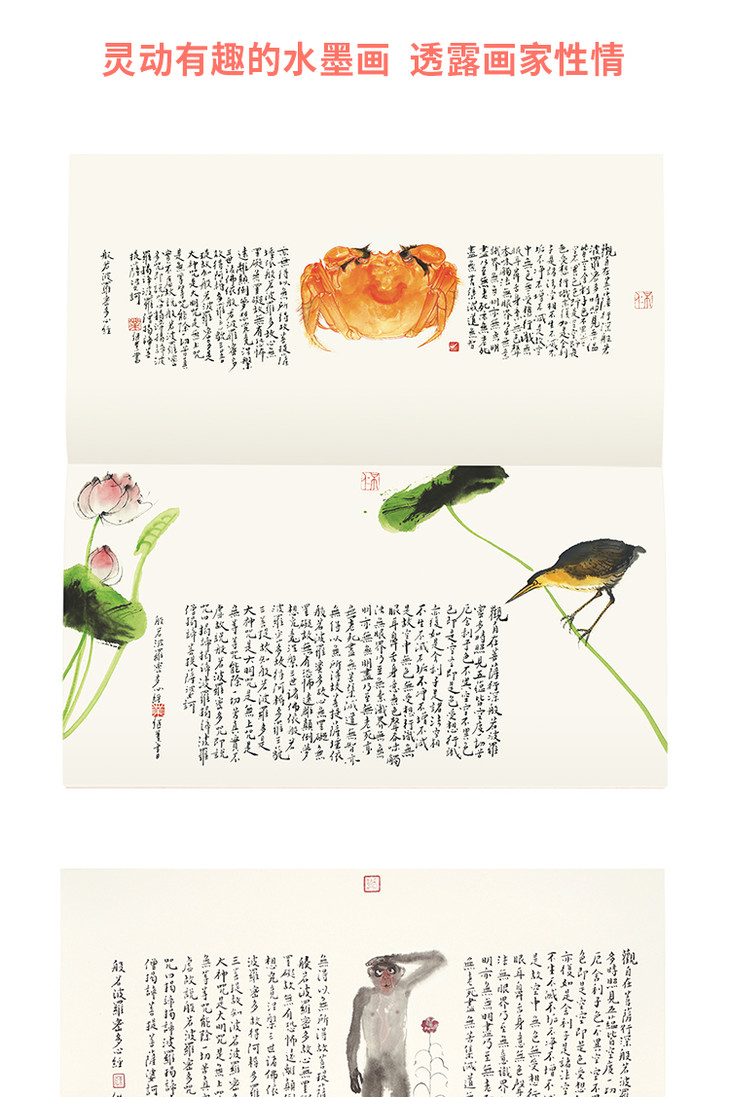 灵动有趣的水墨画 透露画家性情
觀自在菩薩行深般若
波羅蜜多時照見五蘊
亦無得以無所得故菩提薩
埵依般若波羅蜜多故心無
罣礙無罣礙故無有恐怖
遠離顛倒夢想究竟涅槃
三世諸佛依般若波羅蜜多
故得阿耨多羅三藐三菩
提故知般若波羅蜜多是
大神咒是大明咒是無上咒
是無等等咒能除一切苦真
實不虛故說般若波羅蜜
多咒即說咒曰揭諦揭諦波
羅揭諦波羅僧揭諦菩
提薩婆訶
般若波羅蜜多心經
觀自在菩薩行深般若波羅
蜜多時照見五蘊皆空度一切苦
厄舍利子色不異空空不異色
色即是空空即是色受想行識
亦復如是舍利子是諸法空相
不生不滅不垢不淨不增不減
是故空中無色無受想行識無
眼耳鼻舌身意無色聲香味觸
法無眼界乃至無意識界無無
明亦無無明盡乃至無老死亦
無老死盡無苦集滅道無智亦
無得以無所得故菩提薩埵依
般若波羅蜜多故心無罣礙無
罣礙故無有恐怖遠離顛倒夢
想究竟涅槃三世諸佛依般若
波羅蜜多故得阿耨多羅三藐
三菩提故知般若波羅蜜多是
大神咒是大明咒是無上咒是
無等等咒能除一切苦真實不
虛故說般若波羅蜜多咒即說
咒曰揭諦揭諦波羅揭諦波羅
僧揭諦菩提薩婆訶
般若波羅蜜多心經
觀自在菩薩行深般若波羅
多時照見五蘊皆空度一切
厄舍利子色不異空空不
色即是空空即是色受想
亦復如是舍利子是諸法空
不生不滅不垢不淨不增不
是故空中無色無受想行
眼耳鼻舌身意無色聲
法無眼界乃至無意識界
明亦無無明盡乃至無老
無老死盡無苦集滅道
無得以無所得故菩提薩
般若波羅蜜多故心無罣
罣礙故無有恐怖遠離顛倒
想究竟涅槃三世諸佛依
波羅蜜多故得阿耨多羅
三菩提故知般若波羅蜜多
大神咒是大明咒是無上
無等等咒能除一切苦真
虛故說般若波羅蜜多咒
咒曰揭諦揭諦波羅揭諦
僧揭諦菩提薩婆訶
般若波羅蜜多心經